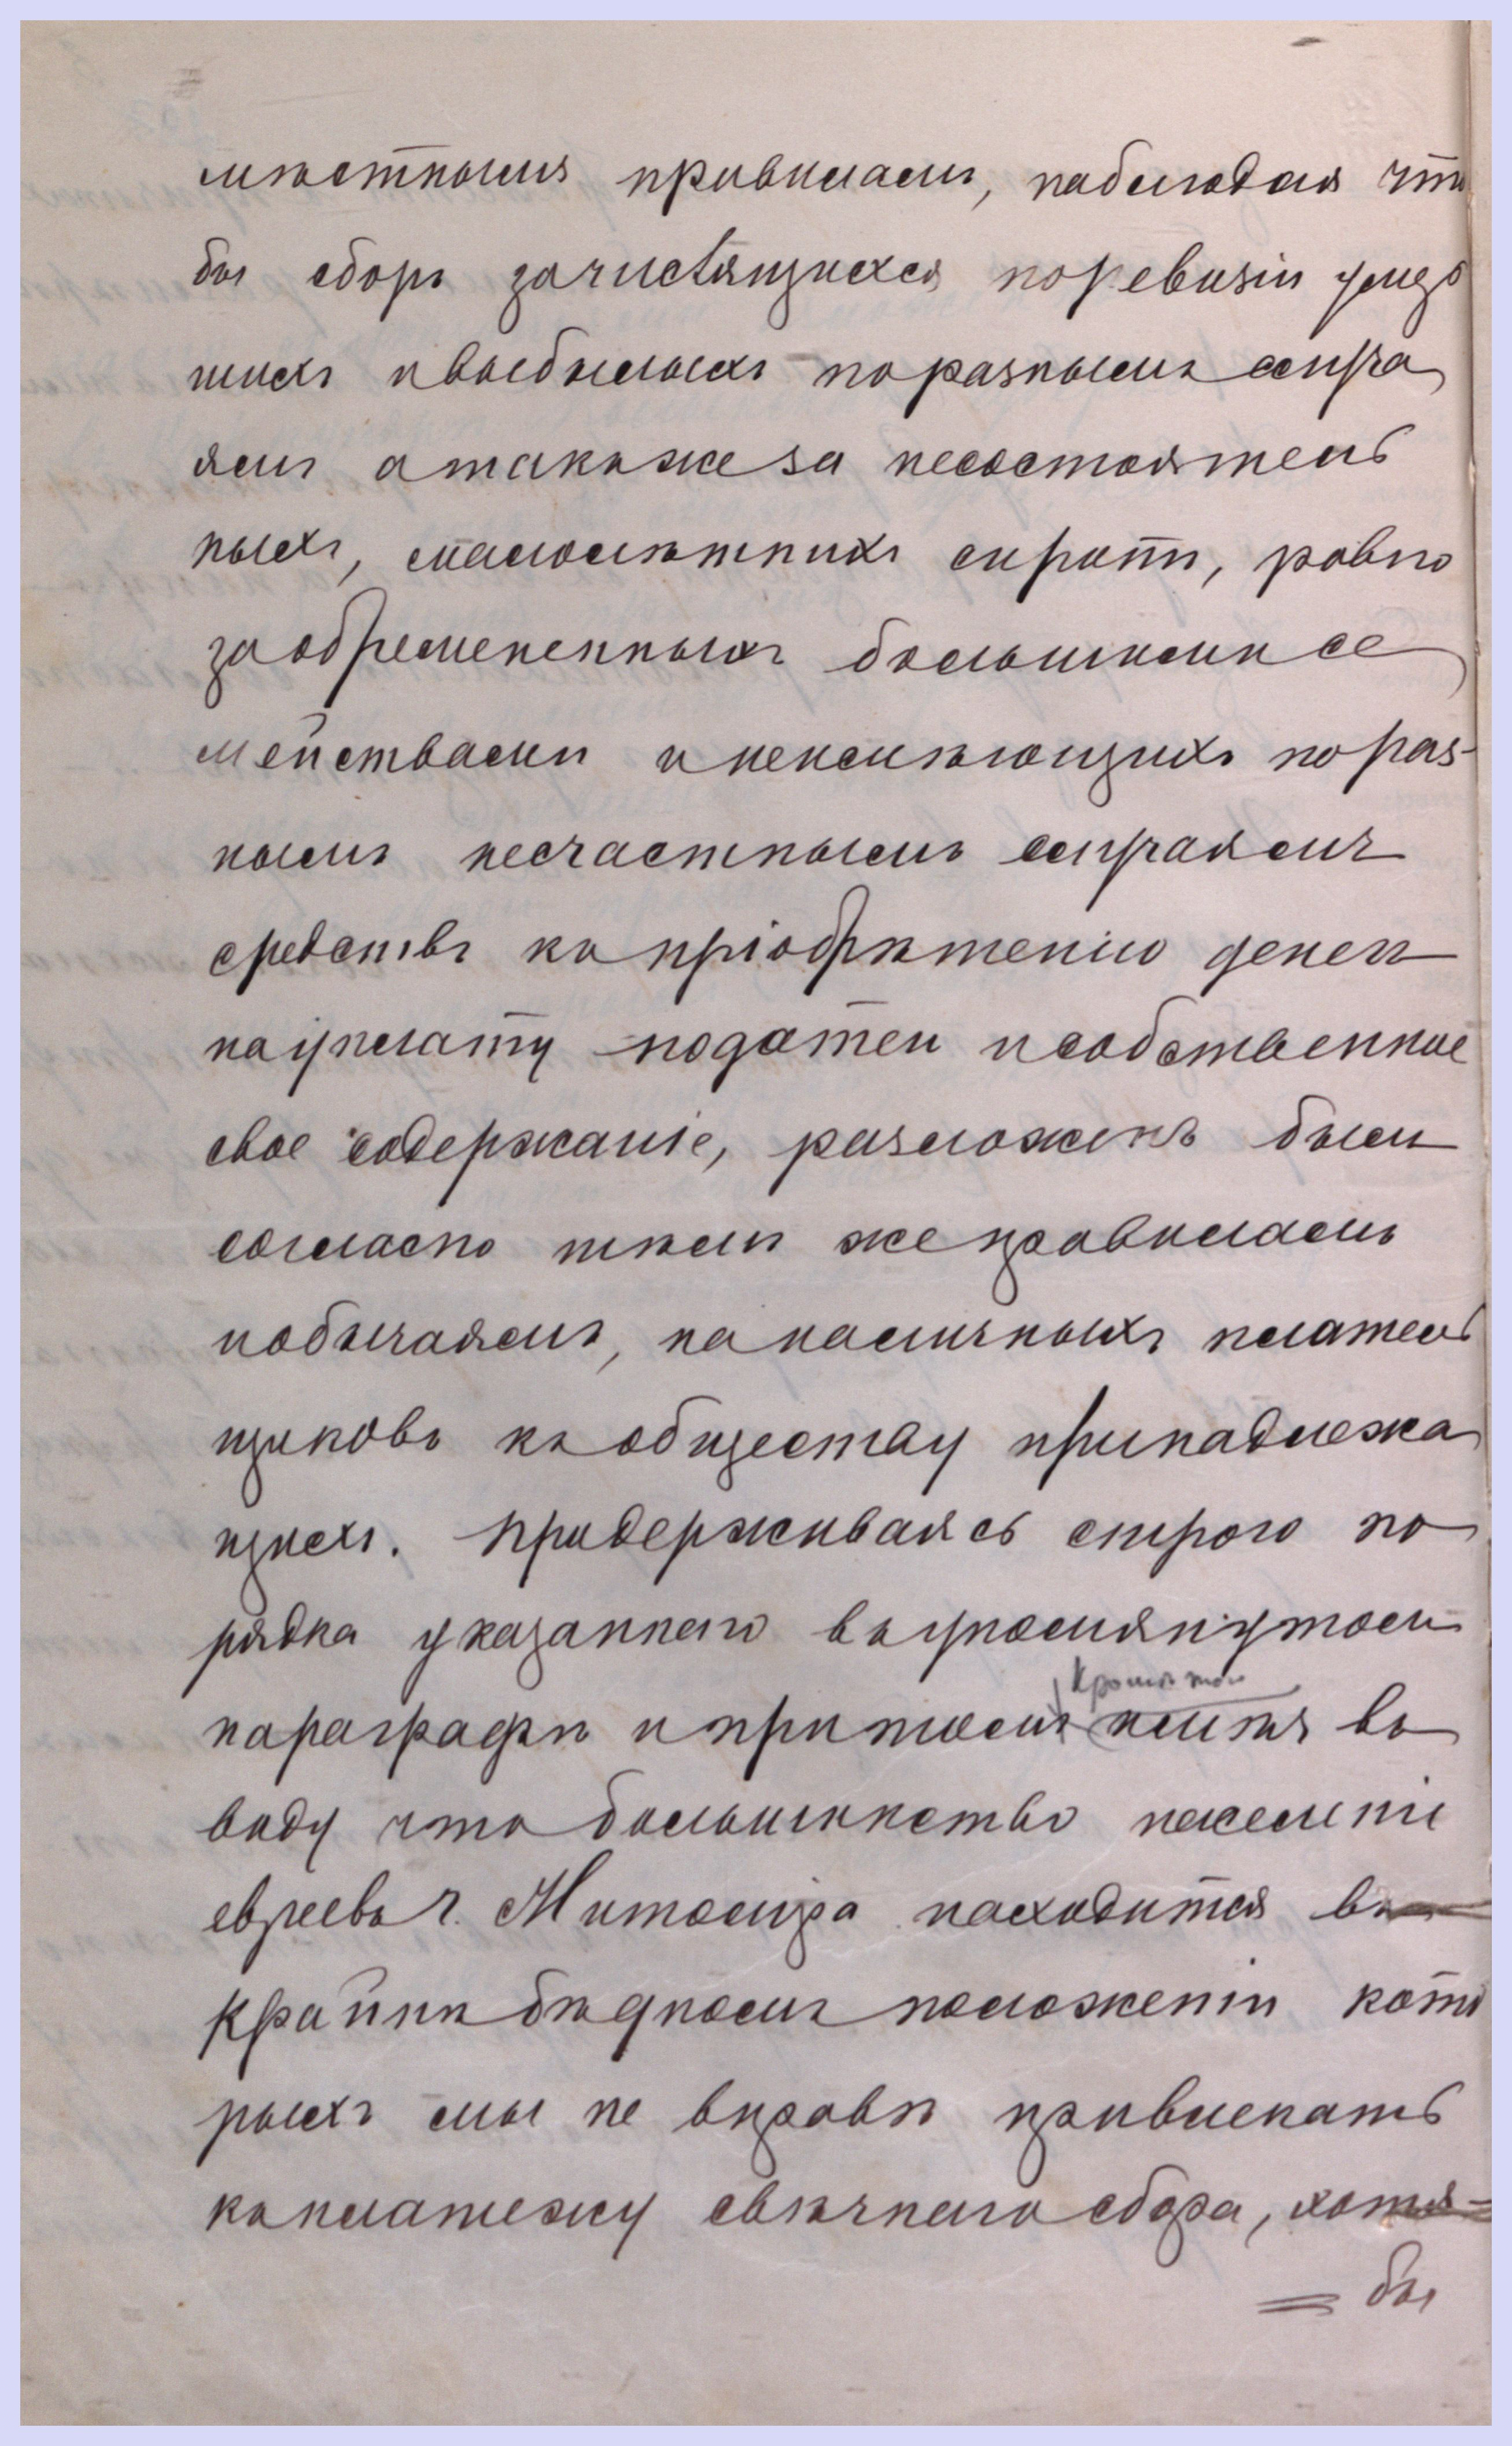 мѣстнымъ правиламъ, наблюдая что
бы сборъ зачислящихся поревизіи умер
шихъ ивыбылыхъ поразнымъ случа
ямъ атакъже за несостоятель
ныхъ, малолѣтнихъ сиротъ, равно
заобремененныхъ большими се
мействами инеимѣющихъ пораз-
нымъ несчастнымъ случаямъ
средствъ къ пріобрѣтенію денегъ
науплату податей исобственное
свое содержаніе, разложенъ былъ
согласно тѣмъ же правиламъ
иобычаямъ, на наличныхъ платель
щиковъ къ обществу принадлежа
щихъ. Придерживаясь строго по
рядка указаннаго въ упомянутомъ
параграфѣ и притомъ Кромѣ того имѣя въ
виду что большинство населенія
евреевъ г. Житоміра находится въ
крайнѣ бѣдномъ положеніи кото
рыхъ мы не вправѣ привлекать
къ платежу свѣчнаго сбора, хотя
= бы